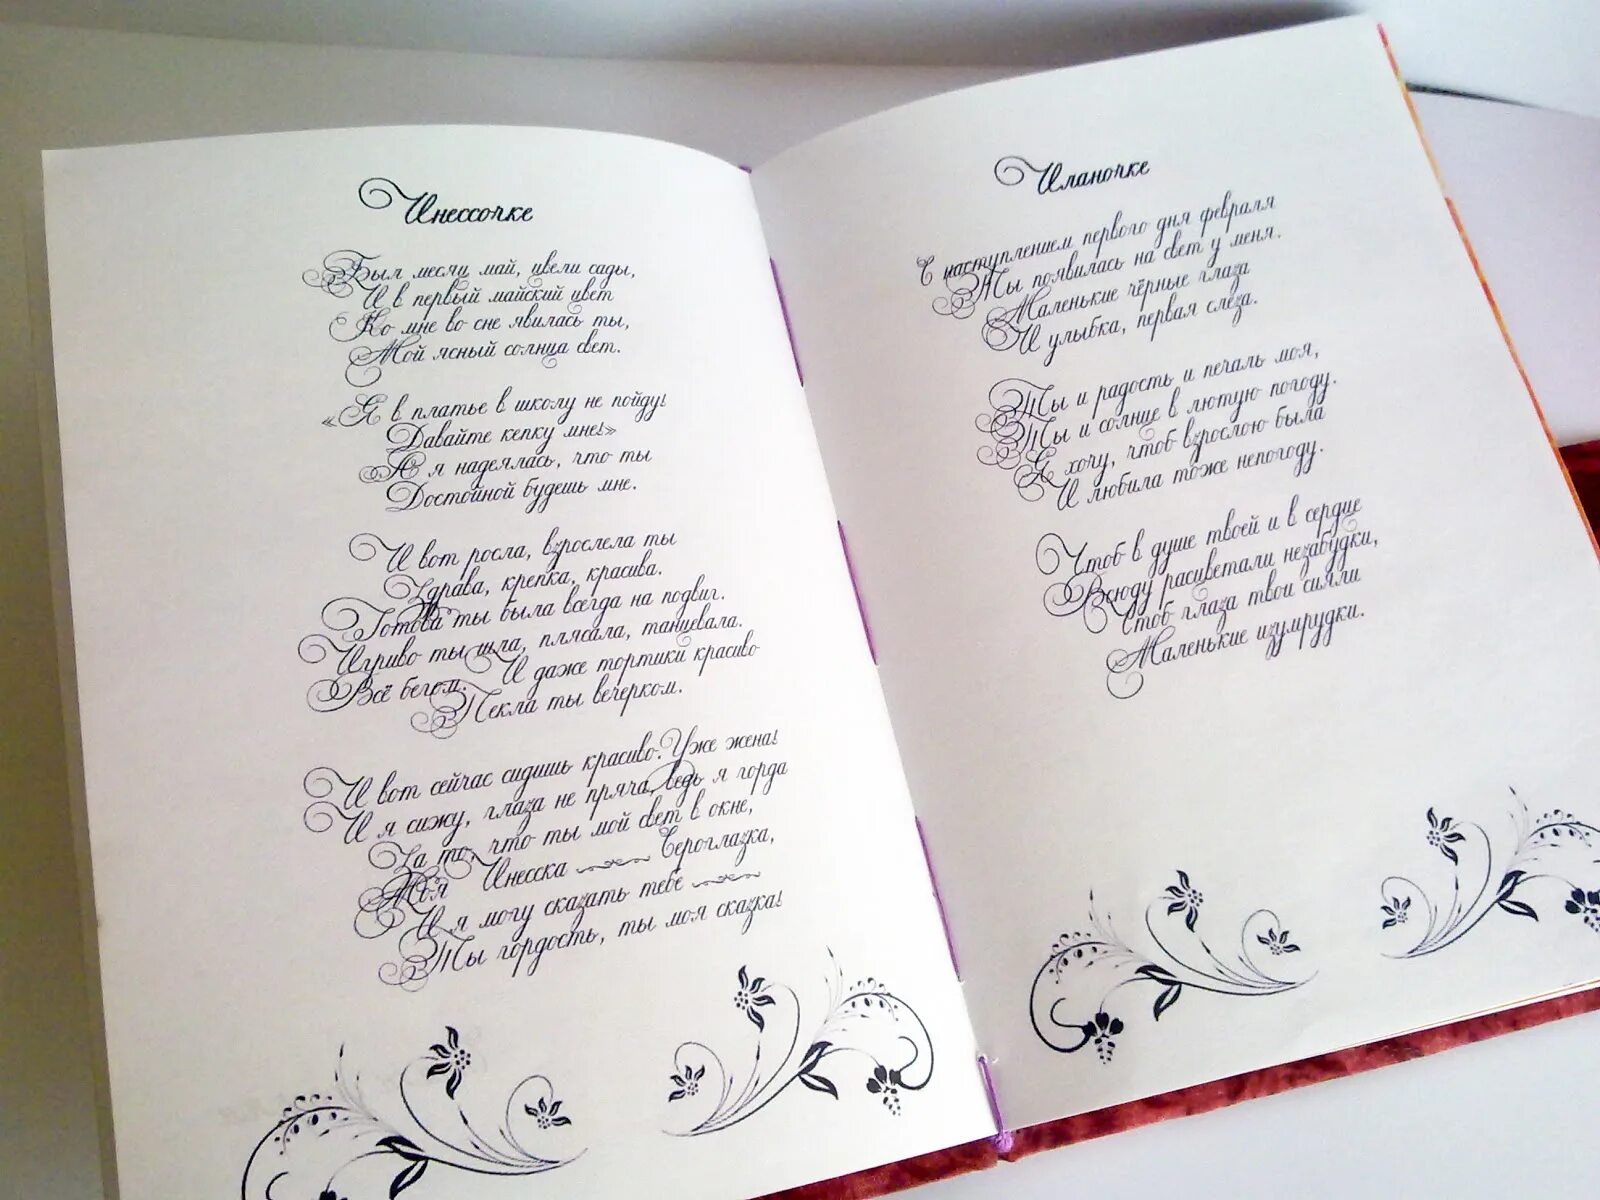 Инессочке
Был месяц май, цвели сады,
И в первый майский цвет
Ко мне во сне явилась ты,
Мой ясный солнца свет.
«Я в платье в школу не пойду!
Давайте кепку мне!»
А я надеялась, что ты
Достойной будешь мне.
И вот росла, взрослела ты
Здрава, крепка, красива.
Готова ты была всегда на подвиг.
Игриво ты шла, плясала, танцевала.
Всё бегом. И даже тортики красиво
Пекла ты вечерком.
И вот сейчас сидишь красиво. Уже жена!
И я сижу, глаза не пряча, ведь я горда
За то, что ты мой свет в окне,
Моя Инесска — Сероглазка,
И я могу сказать тебе —
Ты гордость, ты моя сказка!
Иланочке
С наступлением первого дня февраля
Ты появилась на свет у меня.
Маленькие чёрные глаза
И улыбка, первая слеза.
Ты и радость и печаль моя,
Ты и солнце в лютую погоду.
Я хочу, чтоб взрослою была
И любила тоже непогоду.
Чтоб в душе твоей и в сердце
Всюду расцветали незабудки,
Чтоб глаза твои сияли
Маленькие изумрудки.